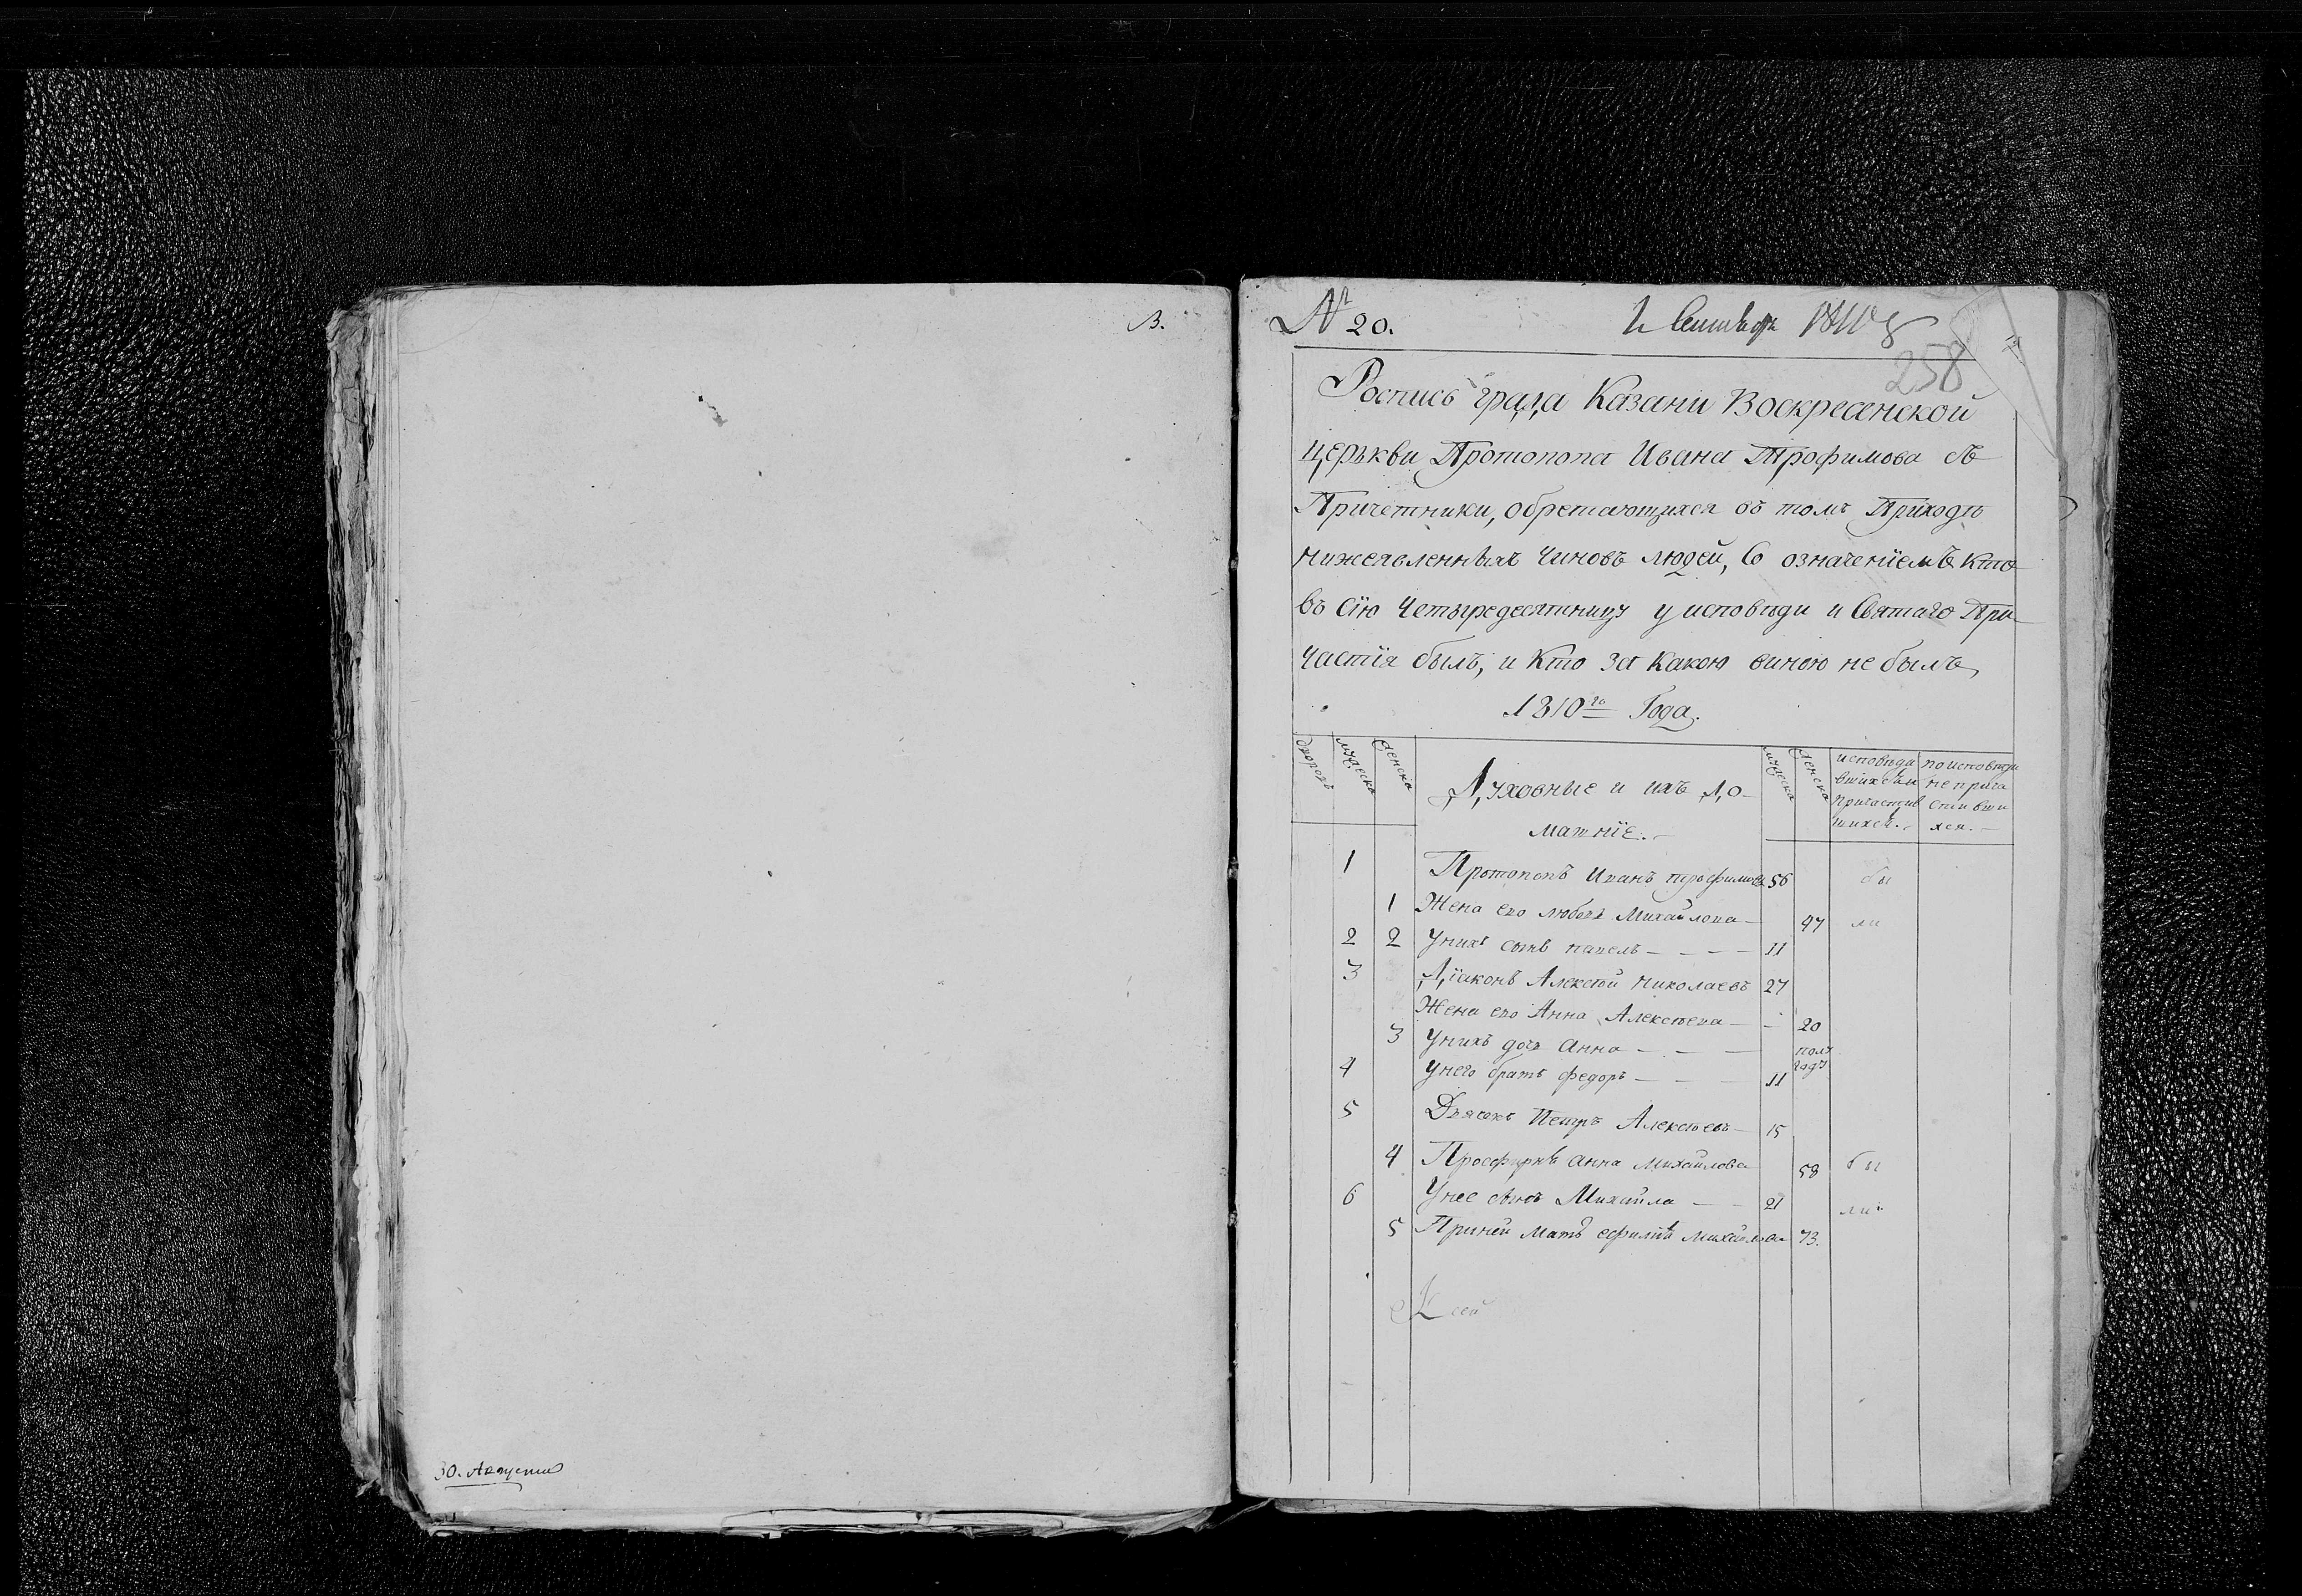 В.
30. Августа
№ 20.
Сентября
258
Роспись града Казани Воскресенской
церькви Протопопа Ивана Трофимова съ
Причетники, обретающихся въ томъ Приходѣ
нижеявленныхъ Чиновъ людей, Со означенїемъ кто
въ сїю Четыредесятницу у исповѣди и Святаго При
частїя былъ, и Кто за Какою виною не былъ,
1810го Года.
дворовъ мужеска женска Духовные и ихъ до- мужеска женска исповѣда по исповѣди
вшихся и не прича
причастив стивши
матнїе. шихся. хся.
1 Протопопъ Иванъ трофимовъ 56 бы
1 Жена его любовь Михайлова 47 ли
2 2 Унихъ сынъ павелъ 11
3 Дїаконъ Алексѣй николаевъ 27
Жена его Анна Алексѣева 20
3 Унихъ дочь анна полу
году
4 Унего братъ федоръ 11
5 Дьячекъ Петръ Алексѣевъ 15
4 Просфирня анна михайлова 58 бы
6 Унее сынъ Михайла 21 ли
5 Приней мать Михайлова 73.